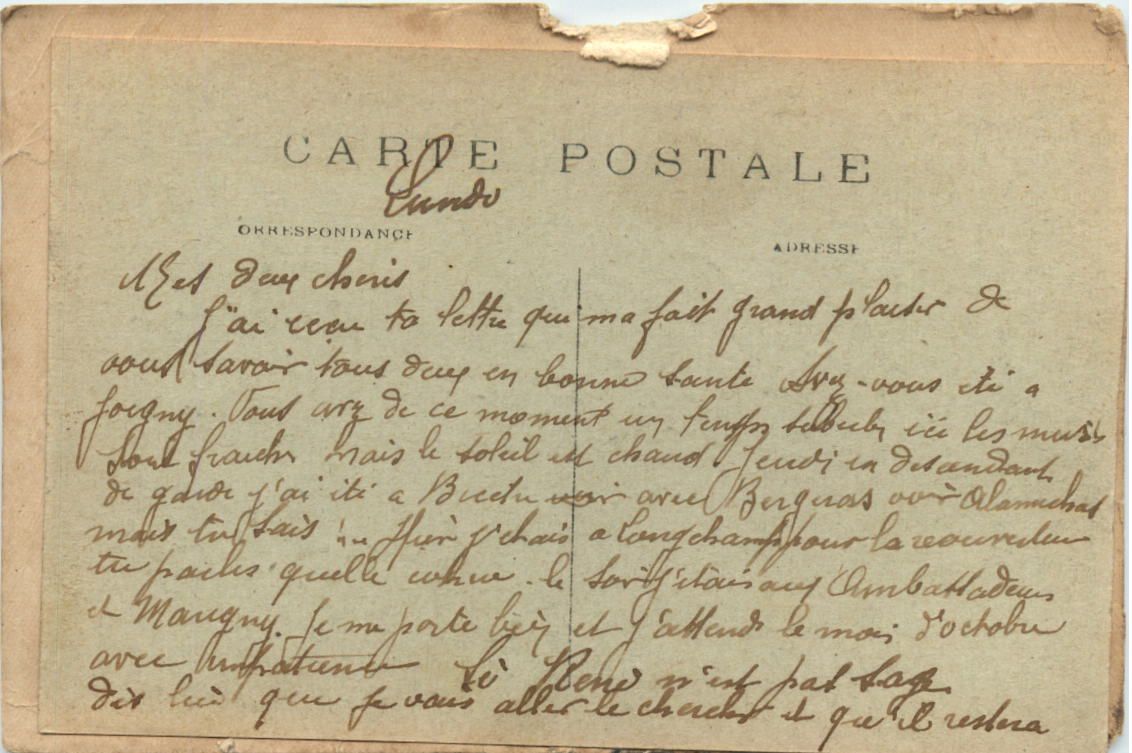 CARTE POSTALE
Lundi
ORRESPONDANCE
ADRESSE
Mes deux cheris
J'ai recu ta lettre qui ma fait grand plaisir de
vous savoir tous deux en bonne sante Avez-vous été a
Joigny. Vous avez de ce moment un temps ici les
sont fraiches mais le soleil est chaud. Jeudi en descendant
de garde j'ai été a avec Bergeras voir
mais tu sais Hier j'étais a Longchamp pour la reouverture
tu parles quelle cohue. le soir j'étais aux Ambassadeurs
et Marigny. Je me porte bien et j'attends le mois d'octobre
avec impatience Si René n'est pas sage
dis lui que je vais aller le chercher et qu'il restera